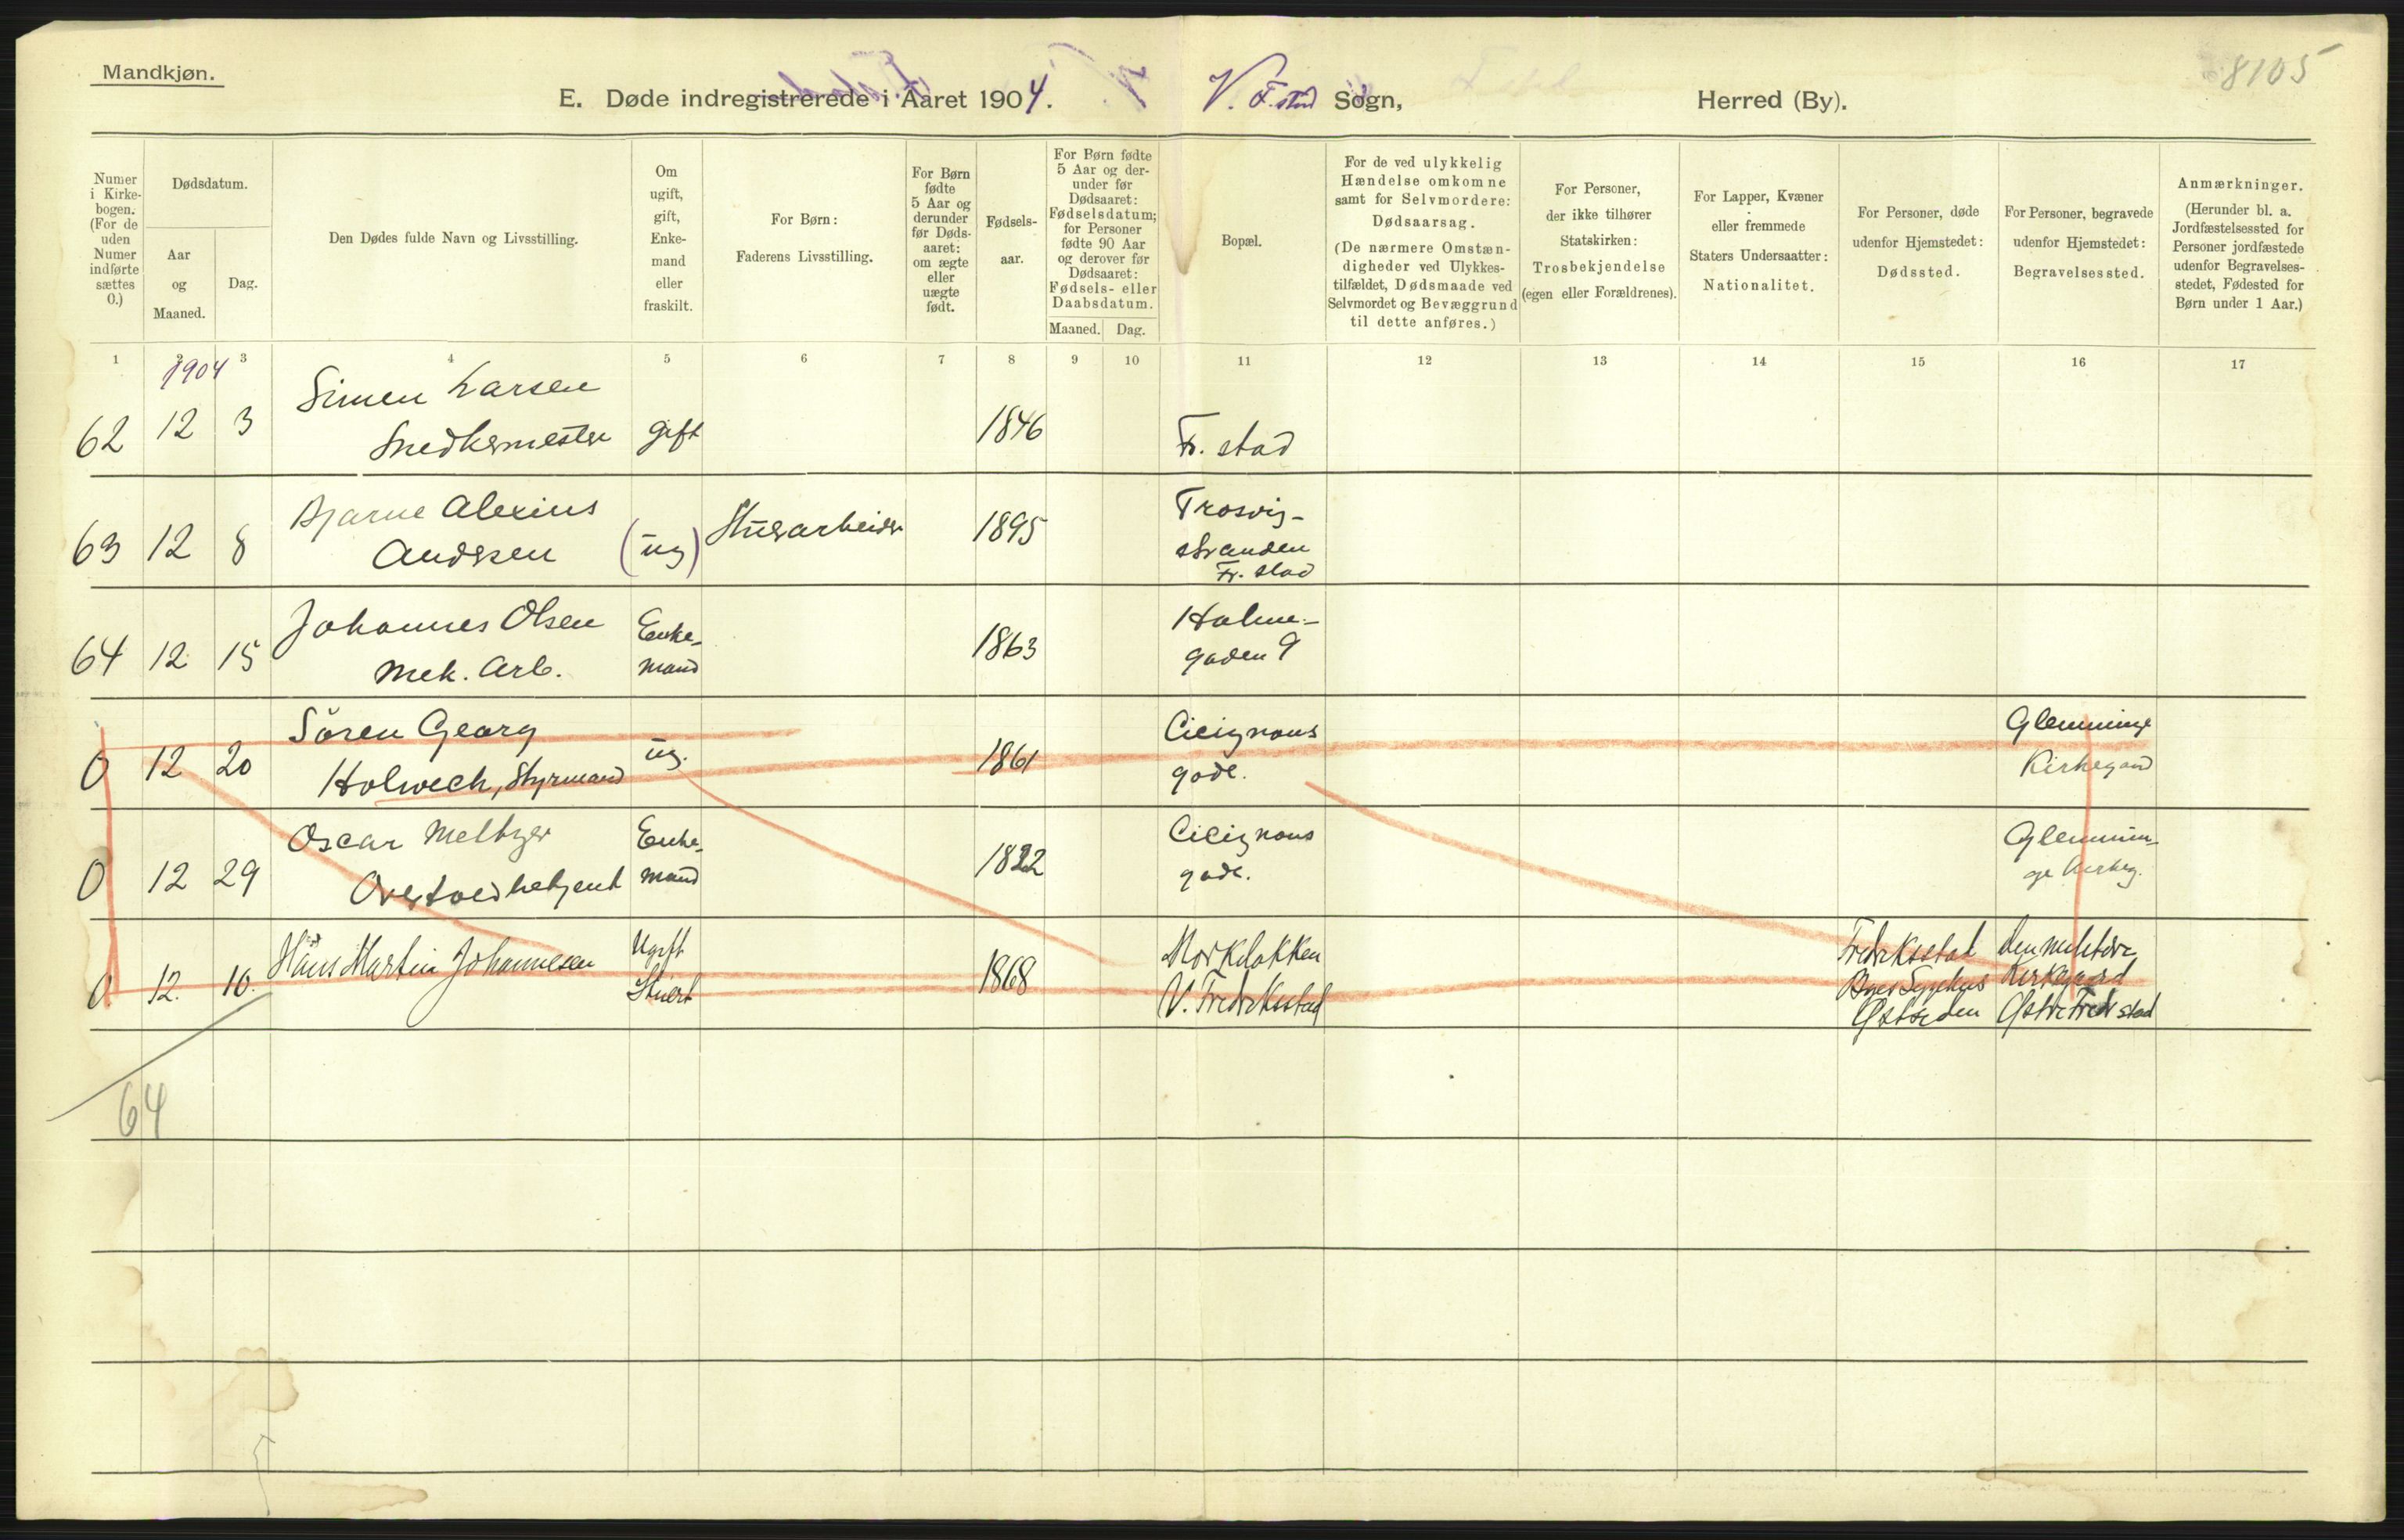 Mandkjøn.
8105
E. Døde indregistrerede i Aaret 1904. V. F.stad Sogn, Herred (By).
Numer i Kirkebogen. (For de uden Numer indførte sættes 0.)
Dødsdatum.
Aar og Maaned.
Dag.
Den Dødes fulde Navn og Livsstilling.
Om ugift, gift, Enkemand eller fraskilt.
For Børn: Faderens Livsstilling.
For Børn fødte 5 Aar og derunder før Dødsaaret: om ægte eller uægte født.
Fødselsaar.
For Børn fødte 5 Aar og derunder før Dødsaaret: Fødselsdatum; for Personer fødte 90 Aar og derover før Dødsaaret: Fødsels- eller Daabsdatum.
Maaned. Dag.
Bopæl.
For de ved ulykkelig Hændelse omkomne samt for Selvmordere: Dødsaarsag. (De nærmere Omstændigheder ved Ulykkestilfældet, Dødsmaade ved Selvmordet og Bevæggrund til dette anføres.)
For Personer, der ikke tilhører Statskirken: Trosbekjendelse (egen eller Forældrenes).
For Lapper, Kvæner eller fremmede Staters Undersaatter: Nationalitet.
For Personer, døde udenfor Hjemstedet: Dødssted.
For Personer, begravede udenfor Hjemstedet: Begravelsessted.
Anmærkninger. (Herunder bl. a. Jordfæstelsessted for Personer jordfæstede udenfor Begravelsesstedet, Fødested for Børn under 1 Aar.)
1 2 3 4 5 6 7 8 9 10 11 12 13 14 15 16 17
1904
62 12 3 Simen Larsen
Snedkermester gift 1846 Fr. stad
63 12 8 Bjarne Alexius
Andersen (ug) Stuerarbeider 1895 Trosvig-
stranden
Fr. stad
64 12 15 Johannes Olsen
Mek. Arb. Enke-
mand 1863 Holme-
gaden 9
0 12 20 Sören Georg
Holwech, Styrmand ug. 1861 Cicignons
gade. Glemminge
Kirkegaard
0 12 29 Oscar Meltzer
Overtoldbetjent Enke-
mand 1822 Cicignons
gade. Glemmin-
ge Kirkeg.
0 12. 10. Hans Martin Johannesen Ugift
Stuert 1868 Mørkeløkken
V. Fredrikstad Fredriksstad
Byes Sygehus
Østsiden den militære
Kirkegaard
Østre Fredrstad
64